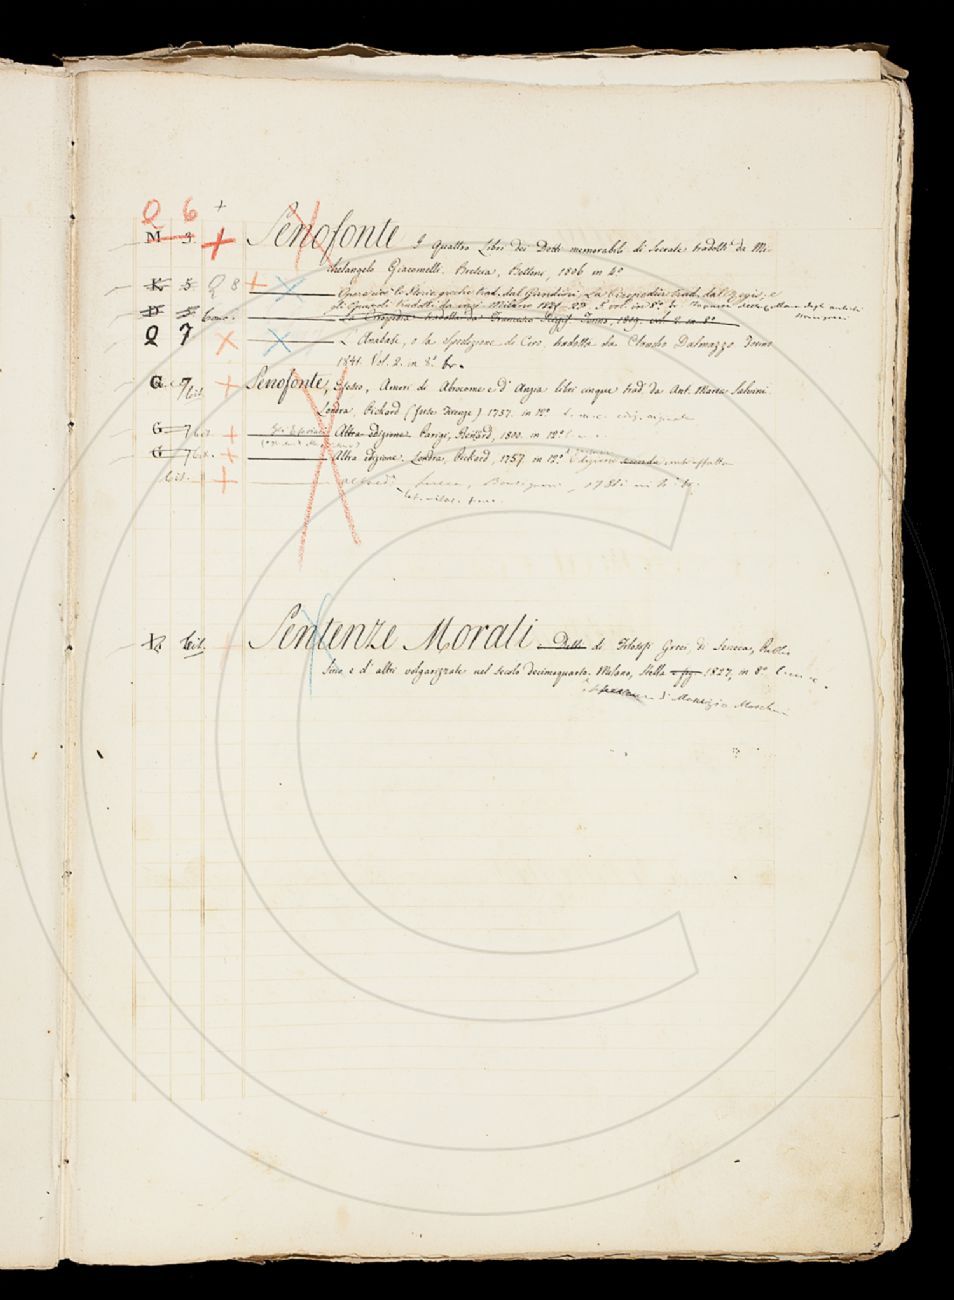 Q 6 +
M 3 + Senofonte I quattro Libri dei Detti memorabili di Socrate tradotti da Mi-
chelangelo Giacomelli. Brescia, Bettoni, 1806 in 4º
K 5 Q 8 + Opere cioè le Storie greche trad. dal Gandini, La Ciropedia trad. dal Regis, e
gli Opuscoli tradotti da varj Milano 1821-23 vol. in 8º
D 5 La Ciropedia tradotta da Francesco Regis. Torino, 1809. vol. 2. in 8º
Q 7 L'Anabasi, o la Spedizione di Ciro, tradotta da Claudio Dalmazzo Torino
Vol. 2. in 8º br.
G 7 bis. + Senofonte, Efesio, Amori di Abrocome e d'Anzia libri cinque trad. da Ant. Maria Salvini
Londra, Pickard (fuse Firenze) 1757. in 12º
G 7 bis + Altra edizione. Parigi, Renard, 1800. in 12º
G 7 bis. + Altra edizione. Londra, Pickard, 1757. in 12º Edizione seconda
bis. + Lucca, Bonsignori,
bis. Sentenze Morali Detti di Filosofi Greci, di Seneca, Publ.
Siro e d'altri volgarizzate nel secolo decimoquarto. Milano, Stella 1827, in 8º